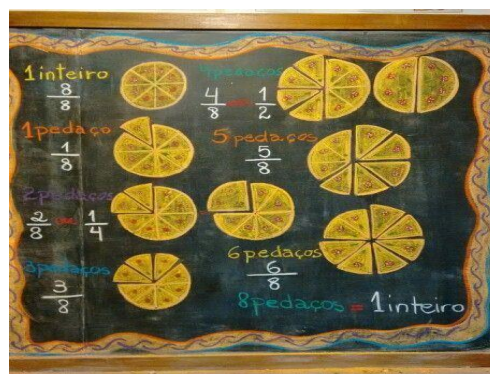 1 inteiro
8/8
1 pedaço
1/8
2 pedaços
2/8 = 1/4
3 pedaços
3/8
4 pedaços
4/8 = 1/2
5 pedaços
5/8
6 pedaços
6/8
8 pedaços = 1 inteiro